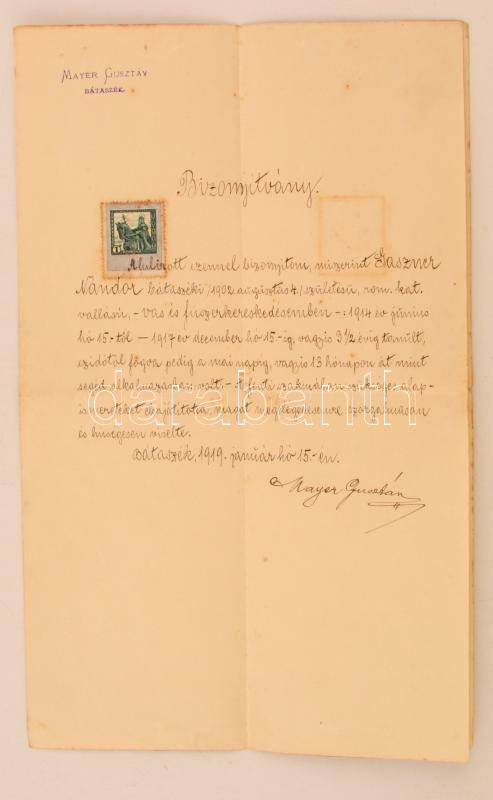 MAYER GUSZTÁV
BÁTASZÉK.
Bizonyitvány.
Alulirott ezennel bizonyitom, miszerint Gaszner
Nándor bátaszéki /1902 augusztus 4./ születésü, rom. kat.
vallásu, - vas és füszerkereskedésemben -: 1914 év junius
hó 15.-től - 1917 év december hó 15.-ig, vagyis 3½ évig tanult,
ezidőtől fogva pedig a mai napig, vagyis 13 hónapon át mint
segéd alkalmazásban volt. - A fenti szakmában szükséges alap-
ismereteket elsajátitotta, magát megelégedésemre szorgalmasan
és hüségesen viselte.
Bátaszék, 1919. január hó 15.-én.
Mayer Gusztáv
darabanth